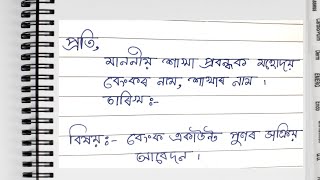 প্ৰতি,
মাননীয় শাখা প্ৰবন্ধক মহোদয়
বেংকৰ নাম, শাখাৰ নাম ।
তাৰিখ :-
বিষয় :- বেংক একাউন্ট পুণৰ সক্ৰিয়
আবেদন ।